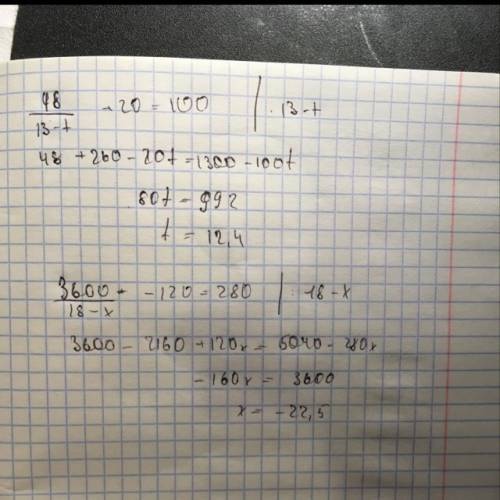 48/(13-t) +20 = 100 | · 13-t
48 + 260 - 20t = 1300 - 100t
80t = 992
t = 12,4
3600/(18-x) - -120 = 280 | · 18-x
3600 - 2160 + 120x = 5040 - 280x
-160x = 3600
x = -22,5